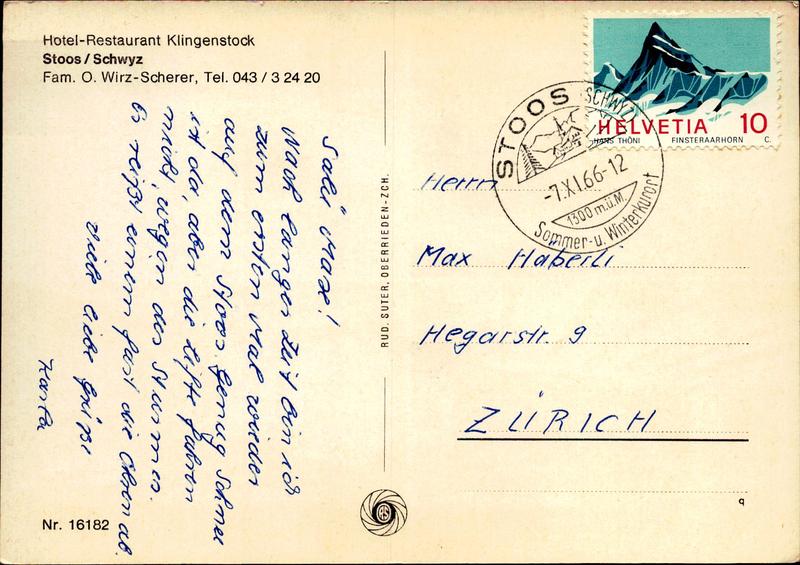 Hotel-Restaurant Klingenstock
Stoos / Schwyz
Fam. O. Wirz-Scherer, Tel. 043 / 3 24 20
Salü Maxe!
Nach langer Zeit bin ich
zum ersten Mal wieder
auf dem Stoos. Genug Schnee
ist da, aber die Lifte fahren
nicht, wegen des Sturmes.
Es reißt einem fast die Ohren ab.
Viele liebe Grüße
Nr. 16182
RUD. SUTER, OBERRIEDEN-ZCH.
HELVETIA 10
HANS THÖNI FINSTERAARHORN C.
STOOS (SCHWYZ)
-7.XI.66-12
1300 m.ü.M.
Sommer- u. Winterkurort
Herrn
Max Häberli
Hegarstr. 9
ZÜRICH
q